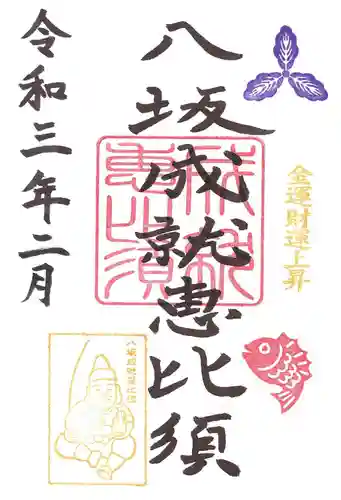 八坂成就恵比須
令和三年二月
金運財運上昇
成就
恵比須